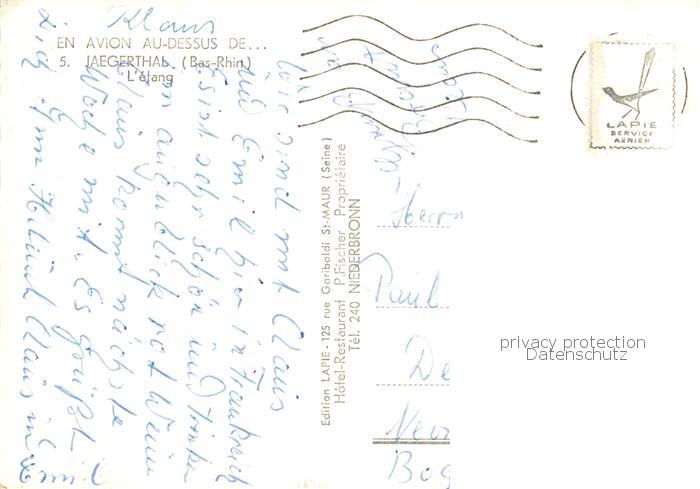 EN AVION AU-DESSUS DE...
5. JAEGERTHAL (Bas-Rhin)
L'étang
Klaus
Wir sind mit Claus
und Emil hier in Frankreich
Es ist sehr schön und trinken
im augenblick rot Wein
Claus kommt nächste
Woche mit. Es grüßt
Dich
Emil
Edition LAPIE - 125 rue Gariboldi St-MAUR (Seine)
Hôtel-Restaurant P. Fischer Propriétaire
Tél. 240 NIEDERBRONN
LAPIE
SERVICE
AERIEN
Herrn
Paul
De
privacy protection
Datenschutz